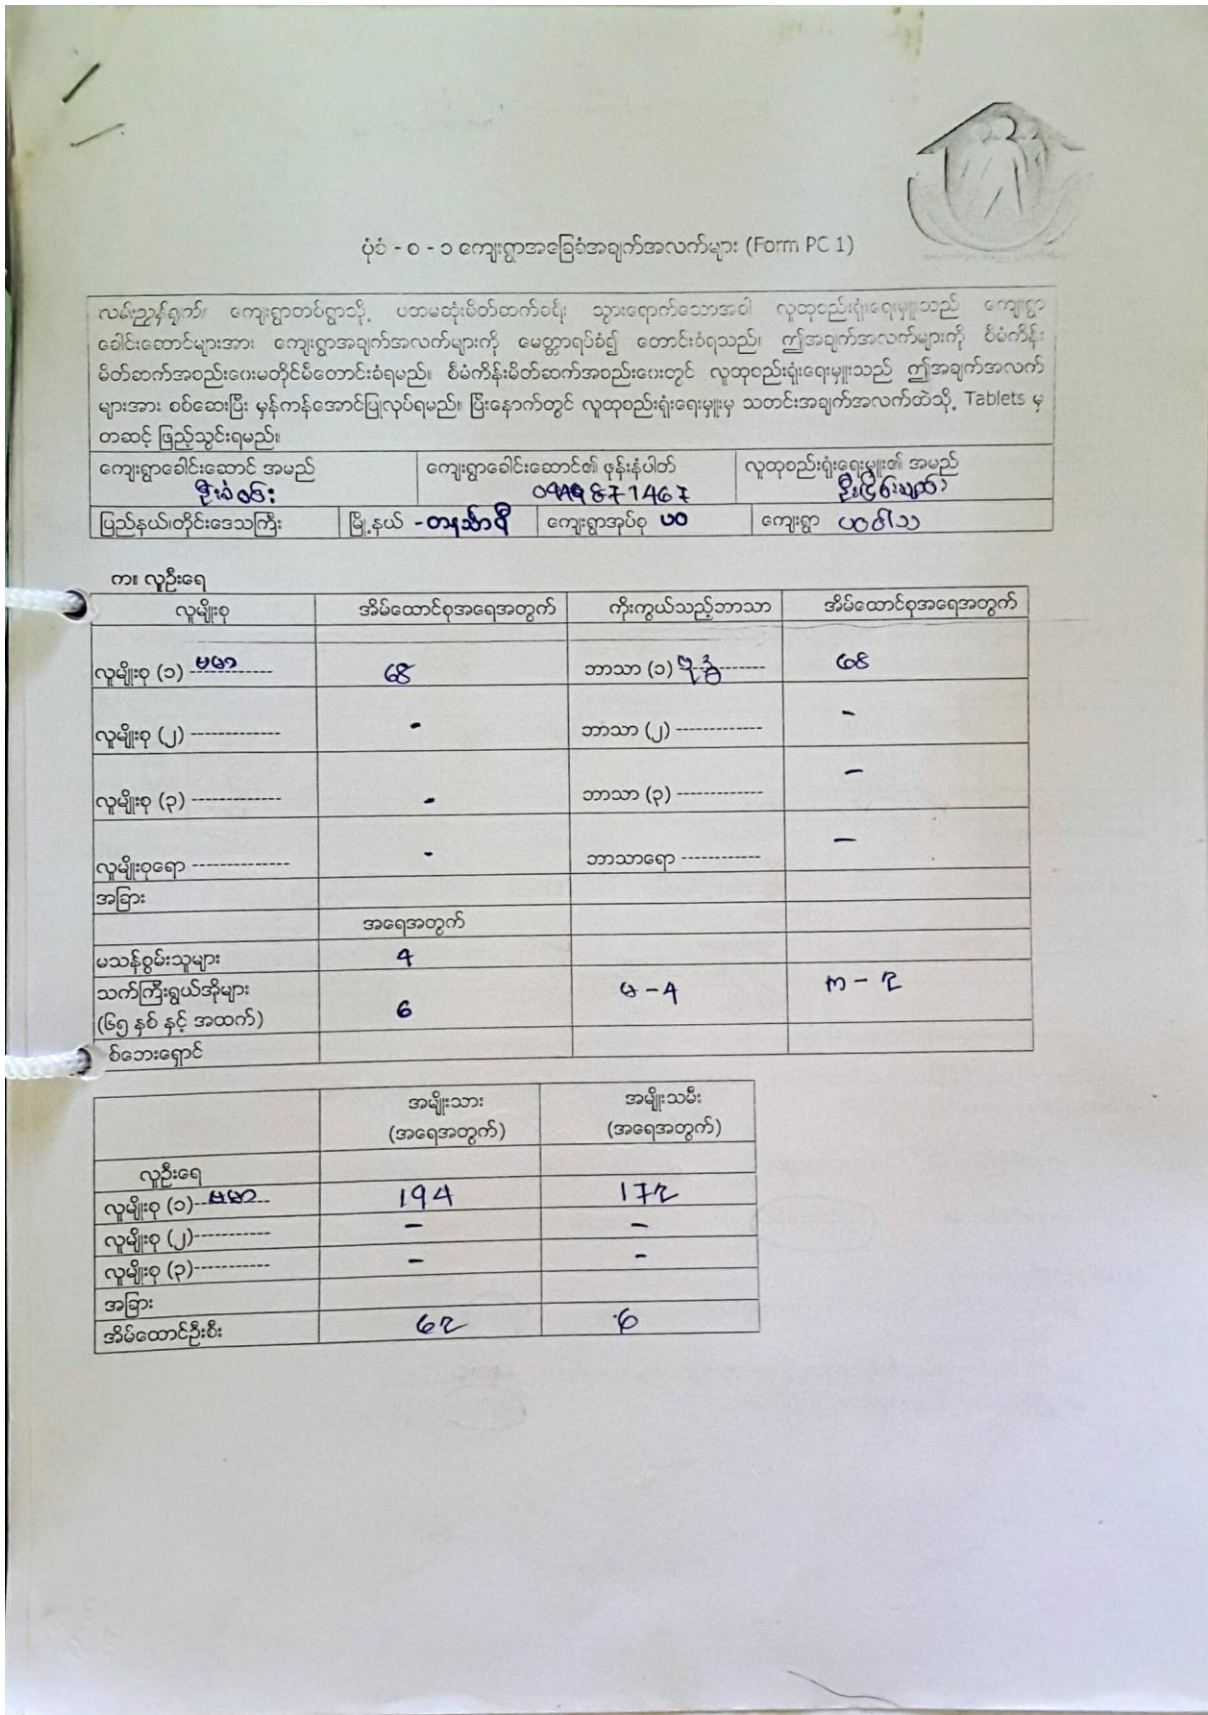 ပုံစံ - စ - ၁ ကျေးရွာအခြေခံအချက်အလက်များ (Form PC 1)
လမ်းညွှန်ချက်။ ကျေးရွာတစ်ရွာသို့ ပထမဆုံးမိတ်ဆက်ခရီး သွားရောက်သောအခါ လူထုစည်းရုံးရေးမှူးသည် ကျေးရွာ
ခေါင်းဆောင်များအား ကျေးရွာအချက်အလက်များကို မေတ္တာရပ်ခံ၍ တောင်းခံရသည်။ ဤအချက်အလက်များကို စီမံကိန်း
မိတ်ဆက်အစည်းဝေးမတိုင်မီတောင်းခံရမည်။ စီမံကိန်းမိတ်ဆက်အစည်းဝေးတွင် လူထုစည်းရုံးရေးမှူးသည် ဤအချက်အလက်
များအား စစ်ဆေးပြီး မှန်ကန်အောင်ပြုလုပ်ရမည်။ ပြီးနောက်တွင် လူထုစည်းရုံးရေးမှူးမှ သတင်းအချက်အလက်ထဲသို့ Tablets မှ
တဆင့် ဖြည့်သွင်းရမည်။
ကျေးရွာခေါင်းဆောင် အမည် ကျေးရွာခေါင်းဆောင်၏ ဖုန်းနံပါတ် လူထုစည်းရုံးရေးမှူး၏ အမည်
ပြည်နယ်၊တိုင်းဒေသကြီး မြို့နယ် - တနင်္သာရီ ကျေးရွာအုပ်စု ပဝ ကျေးရွာ ပဝါသ
က။ လူဦးရေ
လူမျိုးစု အိမ်ထောင်စုအရေအတွက် ကိုးကွယ်သည့်ဘာသာ အိမ်ထောင်စုအရေအတွက်
လူမျိုးစု (၁) ဗမာ 68 ဘာသာ (၁) ဗုဒ္ဓ 68
လူမျိုးစု (၂) ------------- - ဘာသာ (၂) ------------- -
လူမျိုးစု (၃) ------------- - ဘာသာ (၃) ------------- -
လူမျိုးစုရော -------------- - ဘာသာရော ------------ -
အခြား
အရေအတွက်
မသန်စွမ်းသူများ 4
သက်ကြီးရွယ်အိုများ
(၆၅ နှစ် နှင့် အထက်) 6 မ - 4 က - 2
စ်ဘေးရှောင်
အမျိုးသား အမျိုးသမီး
(အရေအတွက်) (အရေအတွက်)
လူဦးရေ
လူမျိုးစု (၁) ဗမာ 194 172
လူမျိုးစု (၂)----------- - -
လူမျိုးစု (၃)----------- - -
အခြား
အိမ်ထောင်ဦးစီး 62 6